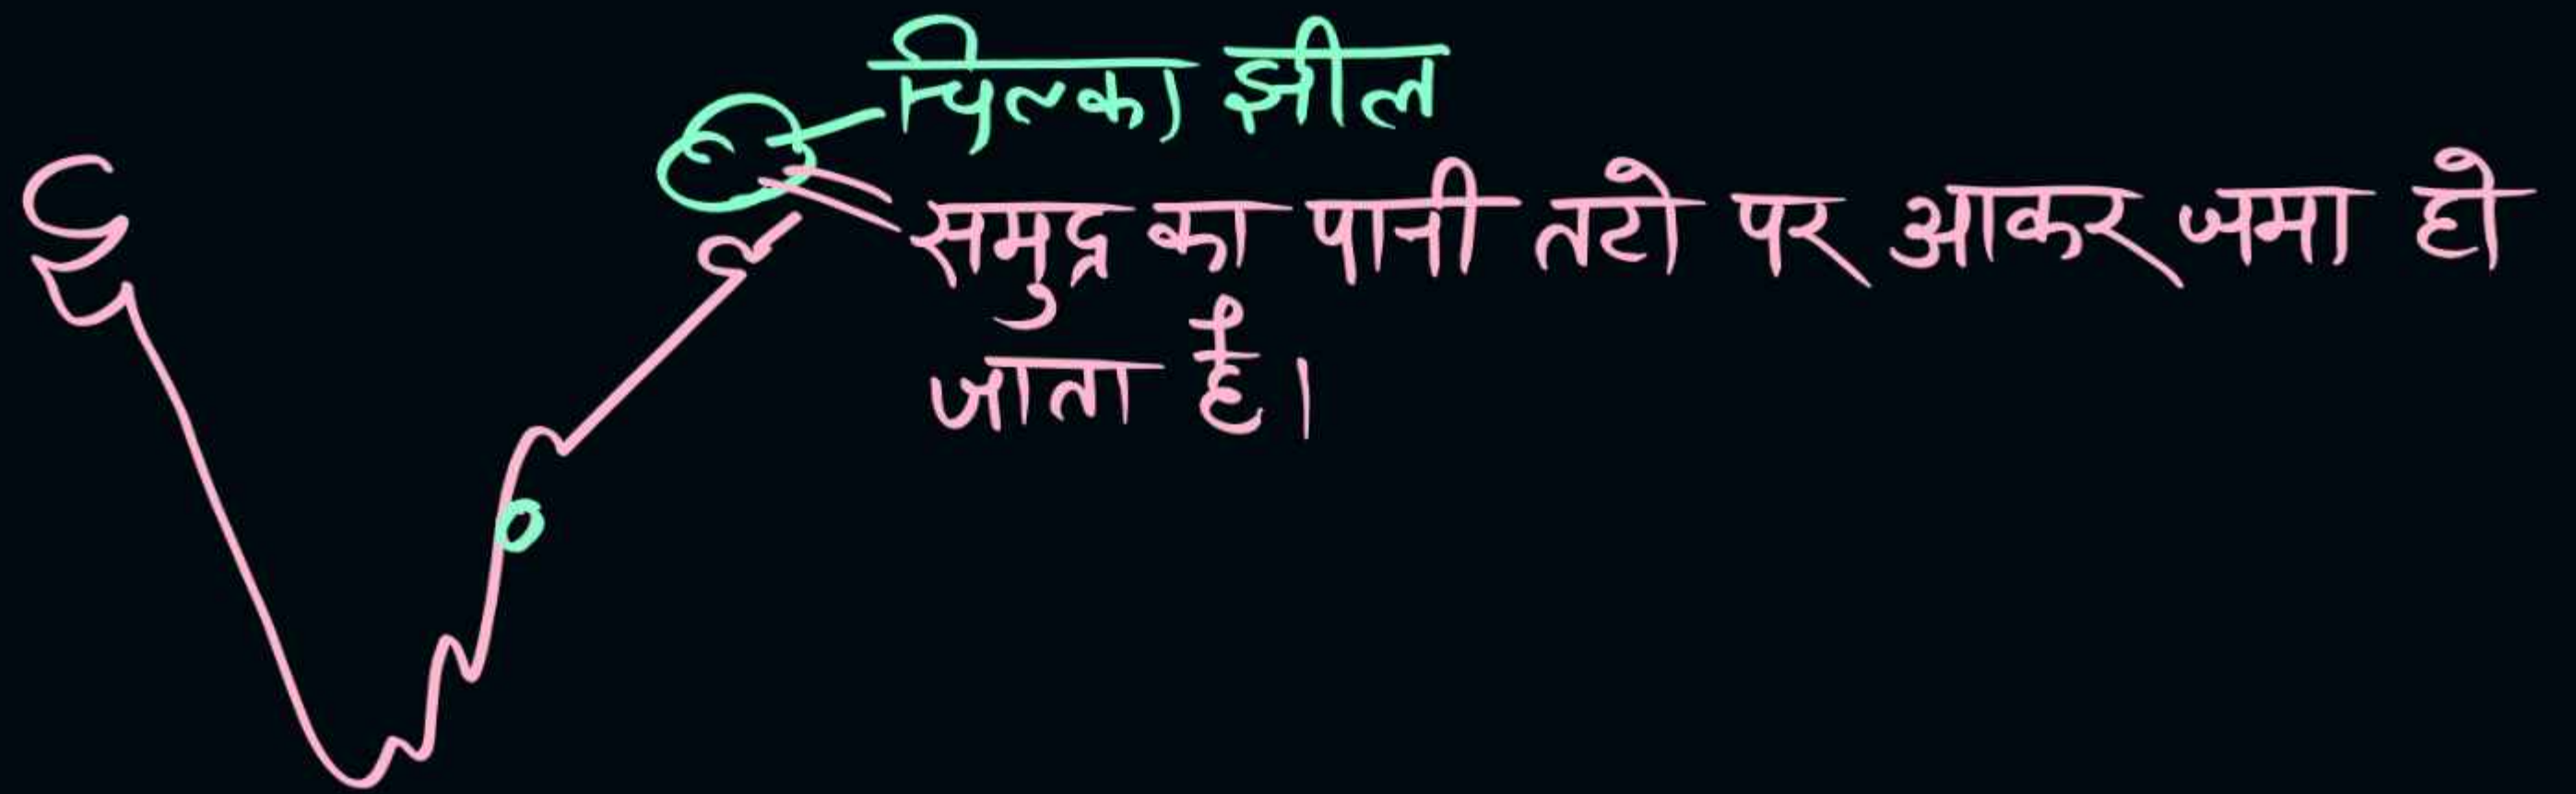 चिल्का झील
समुद्र का पानी तटो पर आकर जमा हो
जाता है।